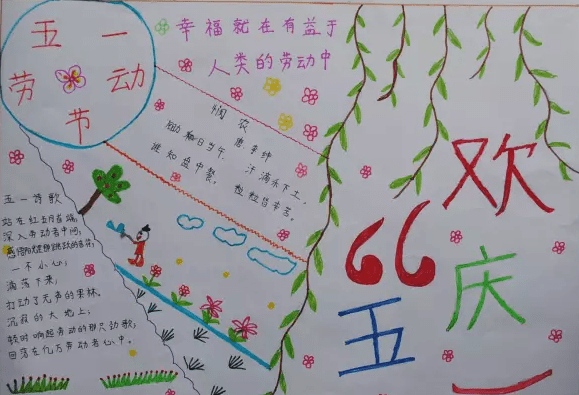 五一
劳动
节
幸福就在有益于
人类的劳动中
悯农
唐 李绅
锄禾日当午, 汗滴禾下土。
谁知盘中餐, 粒粒皆辛苦。
五一诗歌
站在红五月首端,
深入劳动者中间,
跳跃的音符,
一不小心,
滴落下来,
打动了无声的果林。
沉寂的大地上,
顿时响起劳动的那只劲歌,
回荡在亿万劳动者心中。
欢
庆
五一